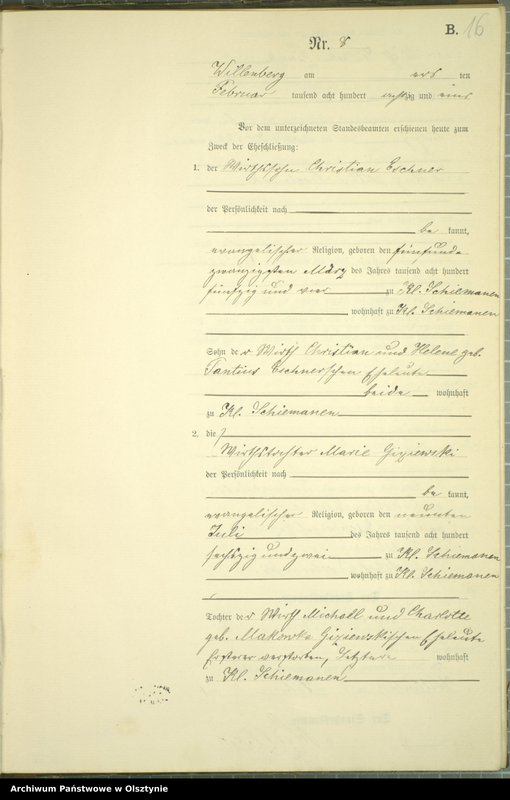 B. 16
Nr. 8
Willenberg am ersten
Februar tausend acht hundert achtzig und eins
Vor dem unterzeichneten Standesbeamten erschienen heute zum
Zweck der Eheschließung:
1. der Wirthssohn Christian Eschner
der Persönlichkeit nach
be kannt,
evangelischer Religion, geboren den fünfund
zwanzigsten März des Jahres tausend acht hundert
fünfzig und vier zu Kl. Schiemanen
, wohnhaft zu Kl. Schiemanen
Sohn der Wirth Christian und Helene geb.
Eschnerschen Eheleute
beide wohnhaft
zu Kl. Schiemanen
2. die
Wirthstochter Marie Giziewski
der Persönlichkeit nach
be kannt,
evangelischer Religion, geboren den neunten
Juli des Jahres tausend acht hundert
sechszig und zwei zu Kl. Schiemanen
, wohnhaft zu Kl. Schiemanen
Tochter der Wirth Michael und Charlotte
geb. Makowka Giziewskischen Eheleute
Ersterer verstorben, Letztere wohnhaft
zu Kl. Schiemanen
Archiwum Państwowe w Olsztynie